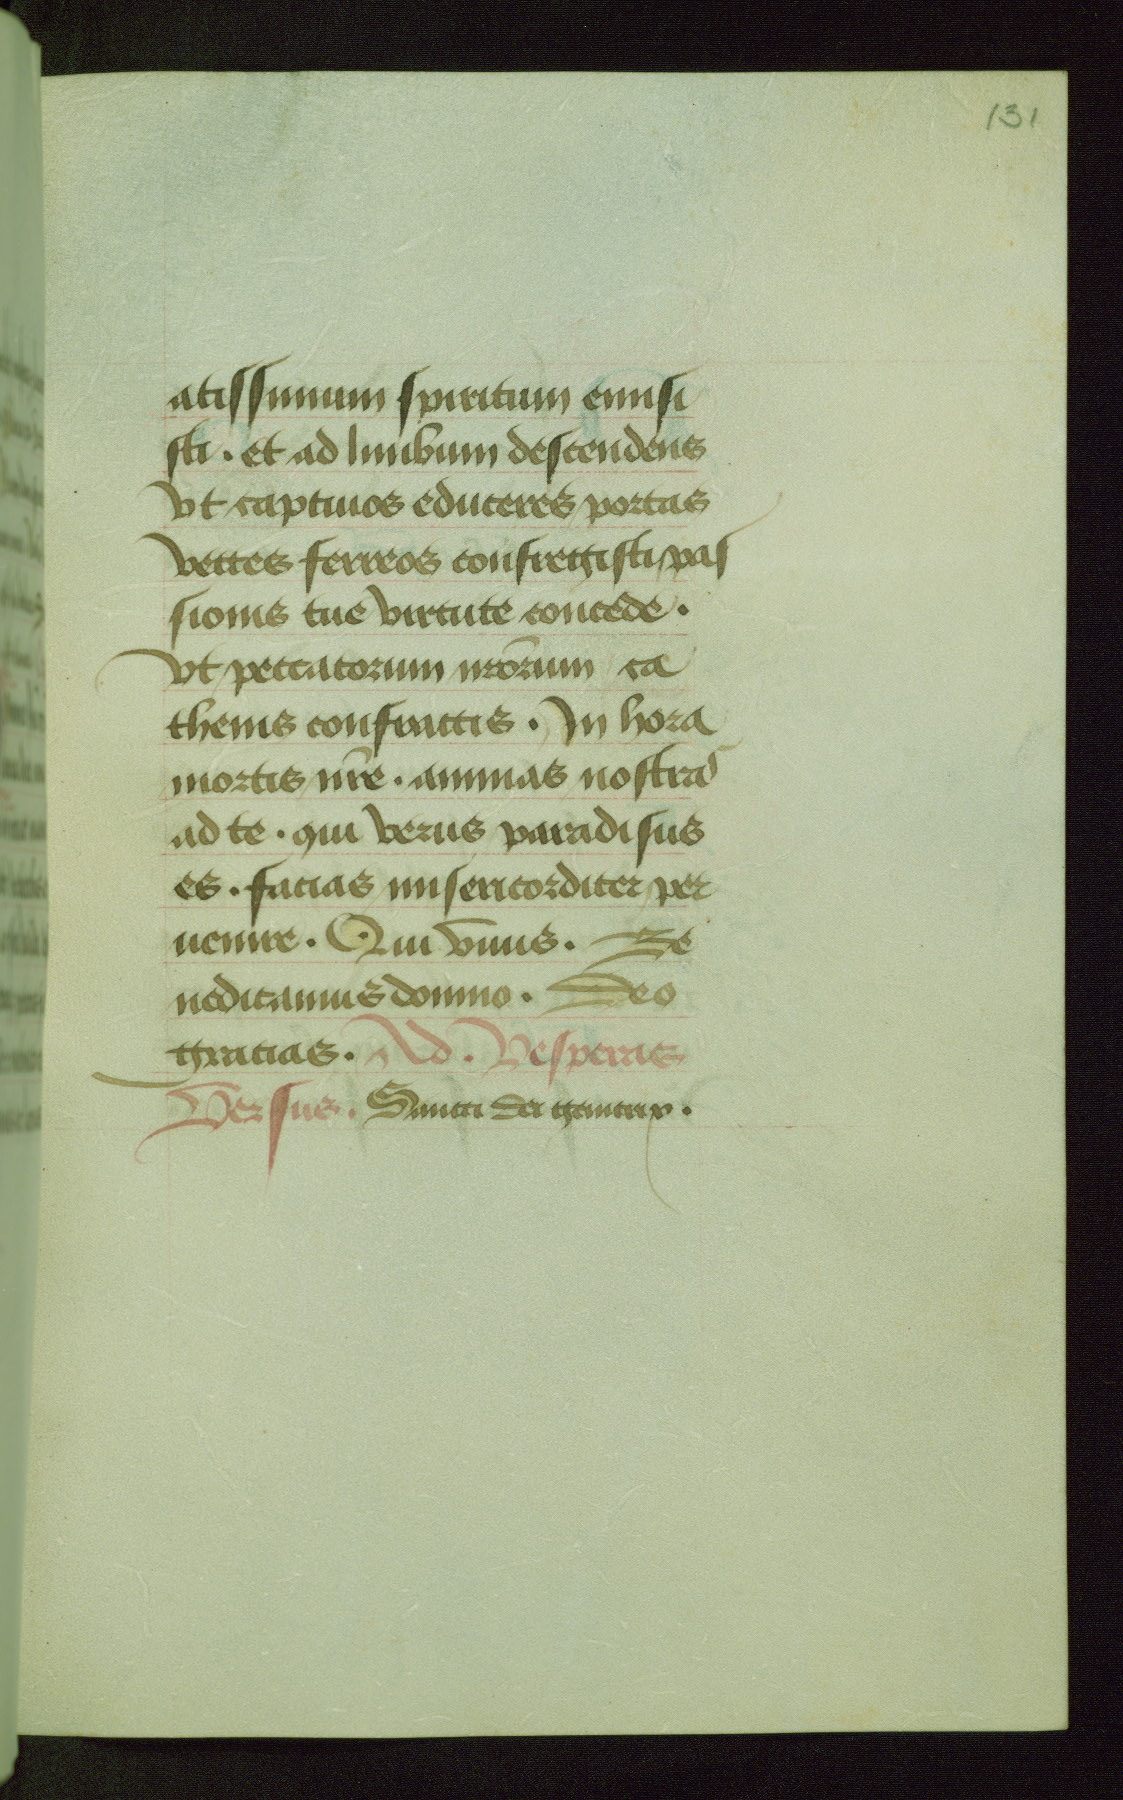 131
atissimum spiritum emisi
sti . et ad limbum descendens
vt captiuos educeres portas
vectes ferreos confregisti pas
sionis tue virtute concede .
vt peccatorum nrōrum ca
thenis confractis . In hora
mortis nr̄e . animas nostras
ad te . qui verus paradisus
es . facias misericorditer per
uenire . Qui viuis . Be
nedicamus domino . Deo
gracias . Ad . Vesperas
Versus . Sancta dei genitrix .